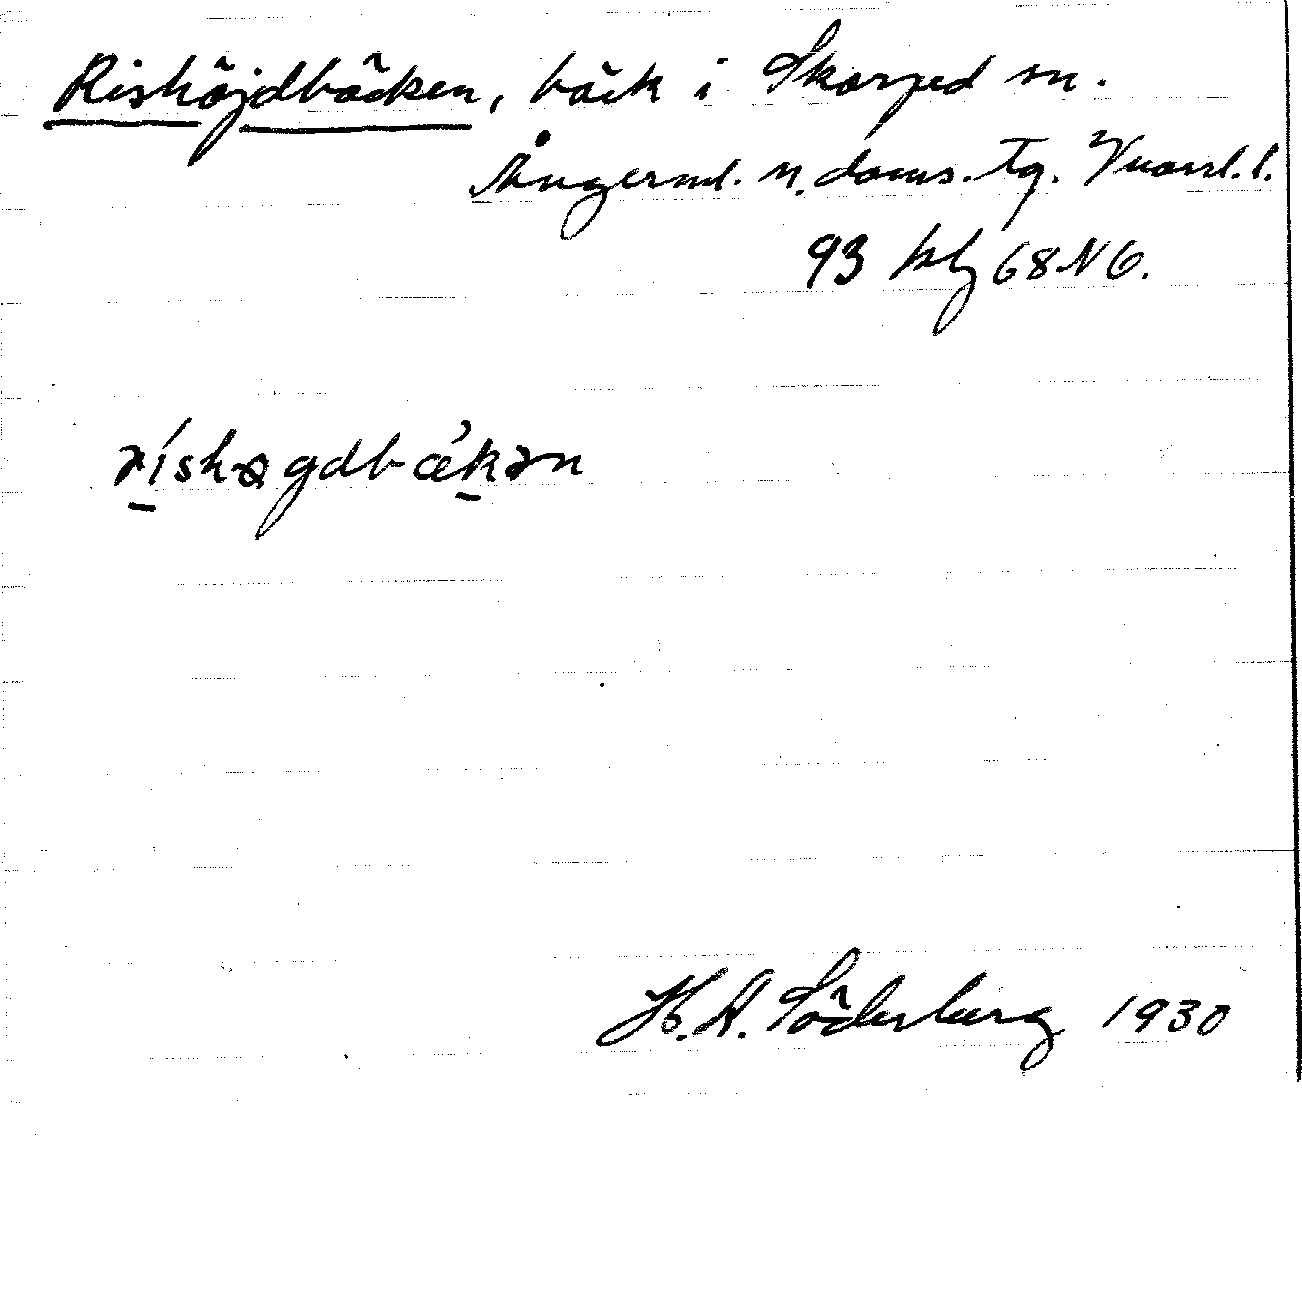 Rishöjdbäcken, bäck i Skorped sn.
Ångerml. n. doms. tg. Vnorrl. l.
93 kbl 68 NO.
ríshøgdbǽkən
H. A. Söderberg 1930